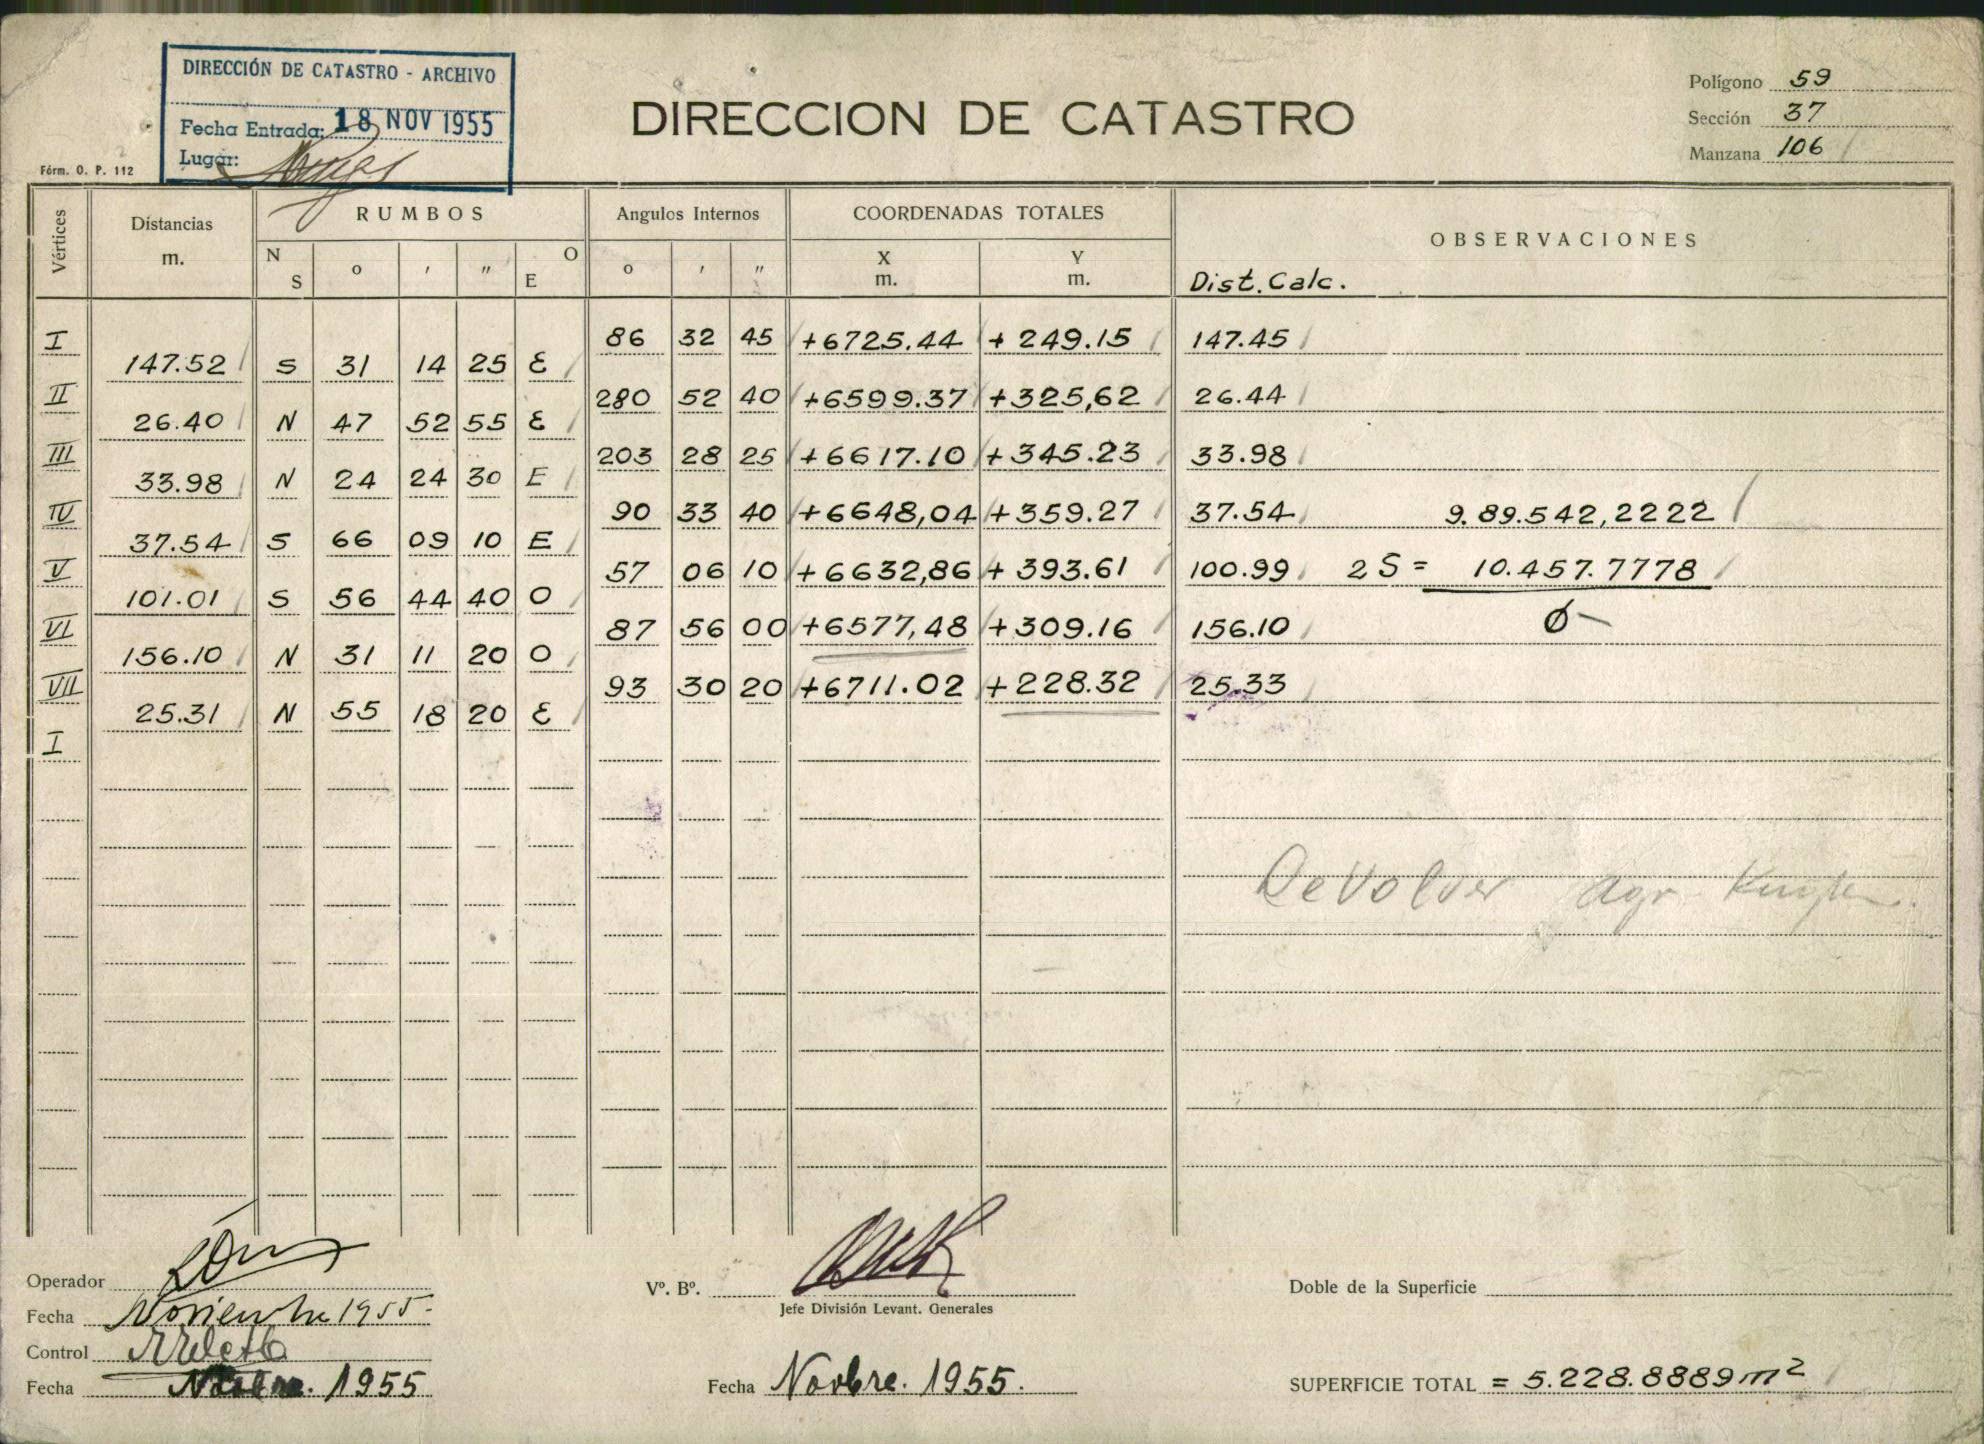 DIRECCIÓN DE CATASTRO - ARCHIVO
Fecha Entrada: 18 NOV 1955
Lugar:
Fórm. O. P. 112
DIRECCION DE CATASTRO
Polígono 59
Sección 37
Manzana 106
Vértices Distancias m. RUMBOS Angulos Internos COORDENADAS TOTALES OBSERVACIONES
N S o ' " O E o ' " X m. Y m. Dist. Calc.
I 86 32 45 +6725.44 + 249.15 147.45
147.52 S 31 14 25 E
II 280 52 40 +6599.37 +325,62 26.44
26.40 N 47 52 55 E
III 203 28 25 +6617.10 +345.23 33.98
33.98 N 24 24 30 E
IV 90 33 40 +6648,04 +359.27 37.54 9.89.542,2222
37.54 S 66 09 10 E
V 57 06 10 +6632,86 + 393.61 100.99 2S = 10.457.7778
101.01 S 56 44 40 O
VI 87 56 00 +6577,48 +309.16 156.10
156.10 N 31 11 20 O
VII 93 30 20 +6711.02 +228.32 25.33
25.31 N 55 18 20 E
I
Devolver agr.
Operador
Fecha Noviembre 1955.
Control
Fecha Novbre. 1955
Vº. Bº.
Jefe División Levant. Generales
Fecha Novbre. 1955.
Doble de la Superficie
SUPERFICIE TOTAL = 5.228.8889 m²